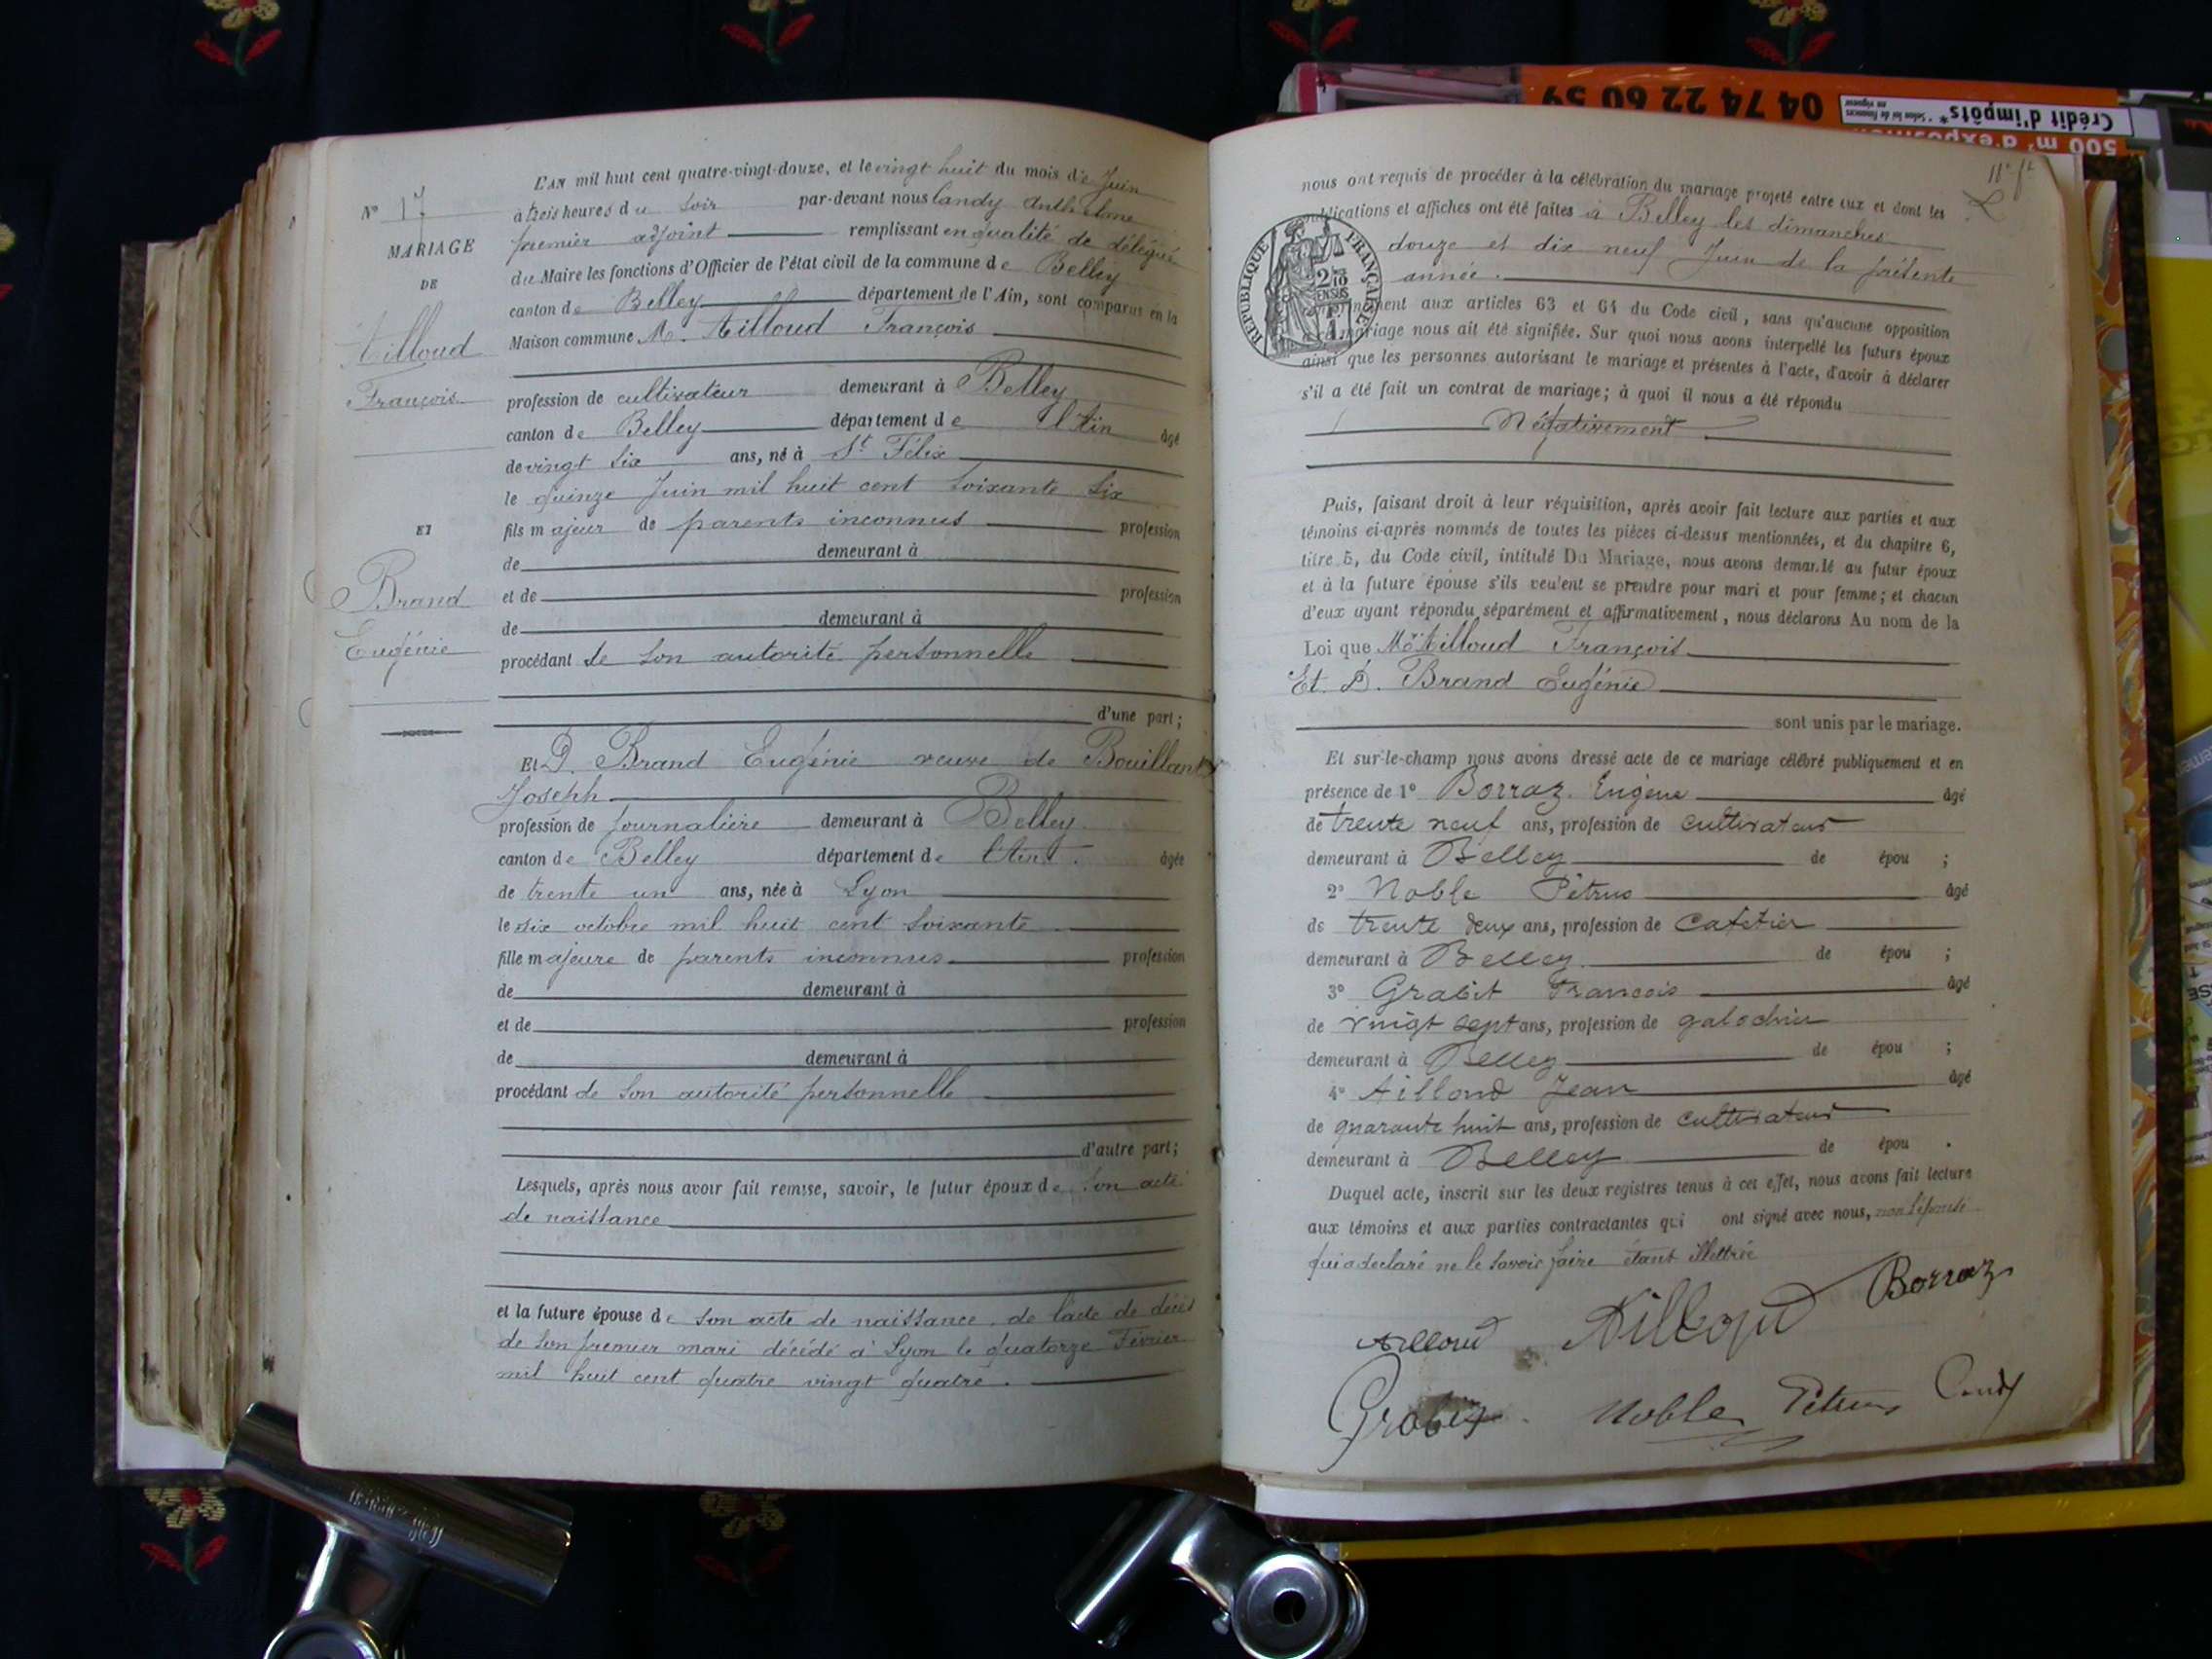 N° 17
MARIAGE
DE
Ailloud
François
ET
Brand
Eugénie
L'AN mil huit cent quatre-vingt-douze, et le vingt huit du mois de Juin
à trois heures du soir par-devant nous Candy Anthelme
premier adjoint remplissant en qualité de délégué
du Maire les fonctions d'Officier de l'état civil de la commune de Belley
canton de Belley département de l'Ain, sont comparus en la
Maison commune M. Ailloud François
profession de cultivateur demeurant à Belley
canton de Belley département de l'Ain âgé
de vingt six ans, né à St Félix
le quinze Juin mil huit cent soixante six
fils majeur de parents inconnus profession
de demeurant à
et de profession
de demeurant à
procédant de son autorité personnelle
d'une part;
Et D. Brand Eugénie veuve de
Joseph
profession de journalière demeurant à Belley
canton de Belley département de l'Ain. âgée
de trente un ans, née à Lyon
le six octobre mil huit cent soixante
fille majeure de parents inconnus profession
de demeurant à
et de profession
de demeurant à
procédant de son autorité personnelle
d'autre part;
Lesquels, après nous avoir fait remise, savoir, le futur époux de son acte
de naissance
et la future épouse de son acte de naissance, de l'acte de décès
de son premier mari décédé à Lyon le quatorze Février
mil huit cent quatre vingt quatre.
04 74 22 60 59
Crédit d'impôts*
500 m² d'exposition
nous ont requis de procéder à la célébration du mariage projeté entre eux et dont les
publications et affiches ont été faites à Belley les dimanches
douze et dix neuf Juin de la présente
année.
RÉPUBLIQUE FRANÇAISE
conformément aux articles 63 et 64 du Code civil, sans qu'aucune opposition
au mariage nous ait été signifiée. Sur quoi nous avons interpellé les futurs époux
ainsi que les personnes autorisant le mariage et présentes à l'acte, d'avoir à déclarer
s'il a été fait un contrat de mariage; à quoi il nous a été répondu
Négativement
Puis, faisant droit à leur réquisition, après avoir fait lecture aux parties et aux
témoins ci-après nommés de toutes les pièces ci-dessus mentionnées, et du chapitre 6,
titre 5, du Code civil, intitulé Du Mariage, nous avons demandé au futur époux
et à la future épouse s'ils veulent se prendre pour mari et pour femme; et chacun
d'eux ayant répondu séparément et affirmativement, nous déclarons Au nom de la
Loi que Mr Ailloud François
Et D. Brand Eugénie
sont unis par le mariage.
Et sur-le-champ nous avons dressé acte de ce mariage célébré publiquement et en
présence de 1° Borraz Eugène âgé
de trente neuf ans, profession de cultivateur
demeurant à Belley de épou ;
2° Noble Pétrus âgé
de trente deux ans, profession de cafetier
demeurant à Belley de épou ;
3° Grabit François âgé
de vingt sept ans, profession de galochier
demeurant à Belley de épou ;
4° Ailloud Jean âgé
de quarante huit ans, profession de cultivateur
demeurant à Belley de épou .
Duquel acte, inscrit sur les deux registres tenus à cet effet, nous avons fait lecture
aux témoins et aux parties contractantes qui ont signé avec nous, non l'épouse
qui a déclaré ne le savoir faire étant illettrée
Ailloud Ailloud Borraz
Grabit Noble Pétrus Candy